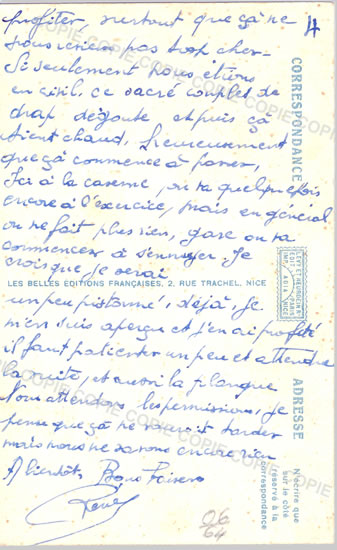 profiter, surtout que çà ne
nous revient pas trop cher.
Si seulement nous étions
en civil, ce sacré complet de
drap dégoute et puis çà
tient chaud, heureusement
que çà commence à passer.
Ici à la caserne, on va quelquefois
encore à l'exercice, mais en général
on ne fait plus rien, gare on va
commencer à s'ennuyer. Je
crois que je serai
un peu pistonné, déjà je
m'en suis aperçu et j'en ai profité
il faut patienter un peu et attendre
la suite, et aussi la planque
Nous attendons les permissions, je
pense que çà ne saurait tarder
mais nous ne savons encore rien
A bientôt, Bons baisers
René
4
CORRESPONDANCE
LES BELLES ÉDITIONS FRANÇAISES, 2, RUE TRACHEL, NICE
LÉVY ET NEURDEIN RÉ
ADRESSE
N'écrire que
sur le côté
réservé à la
correspondance
06
64
COPIE COPIE COPIE COPIE